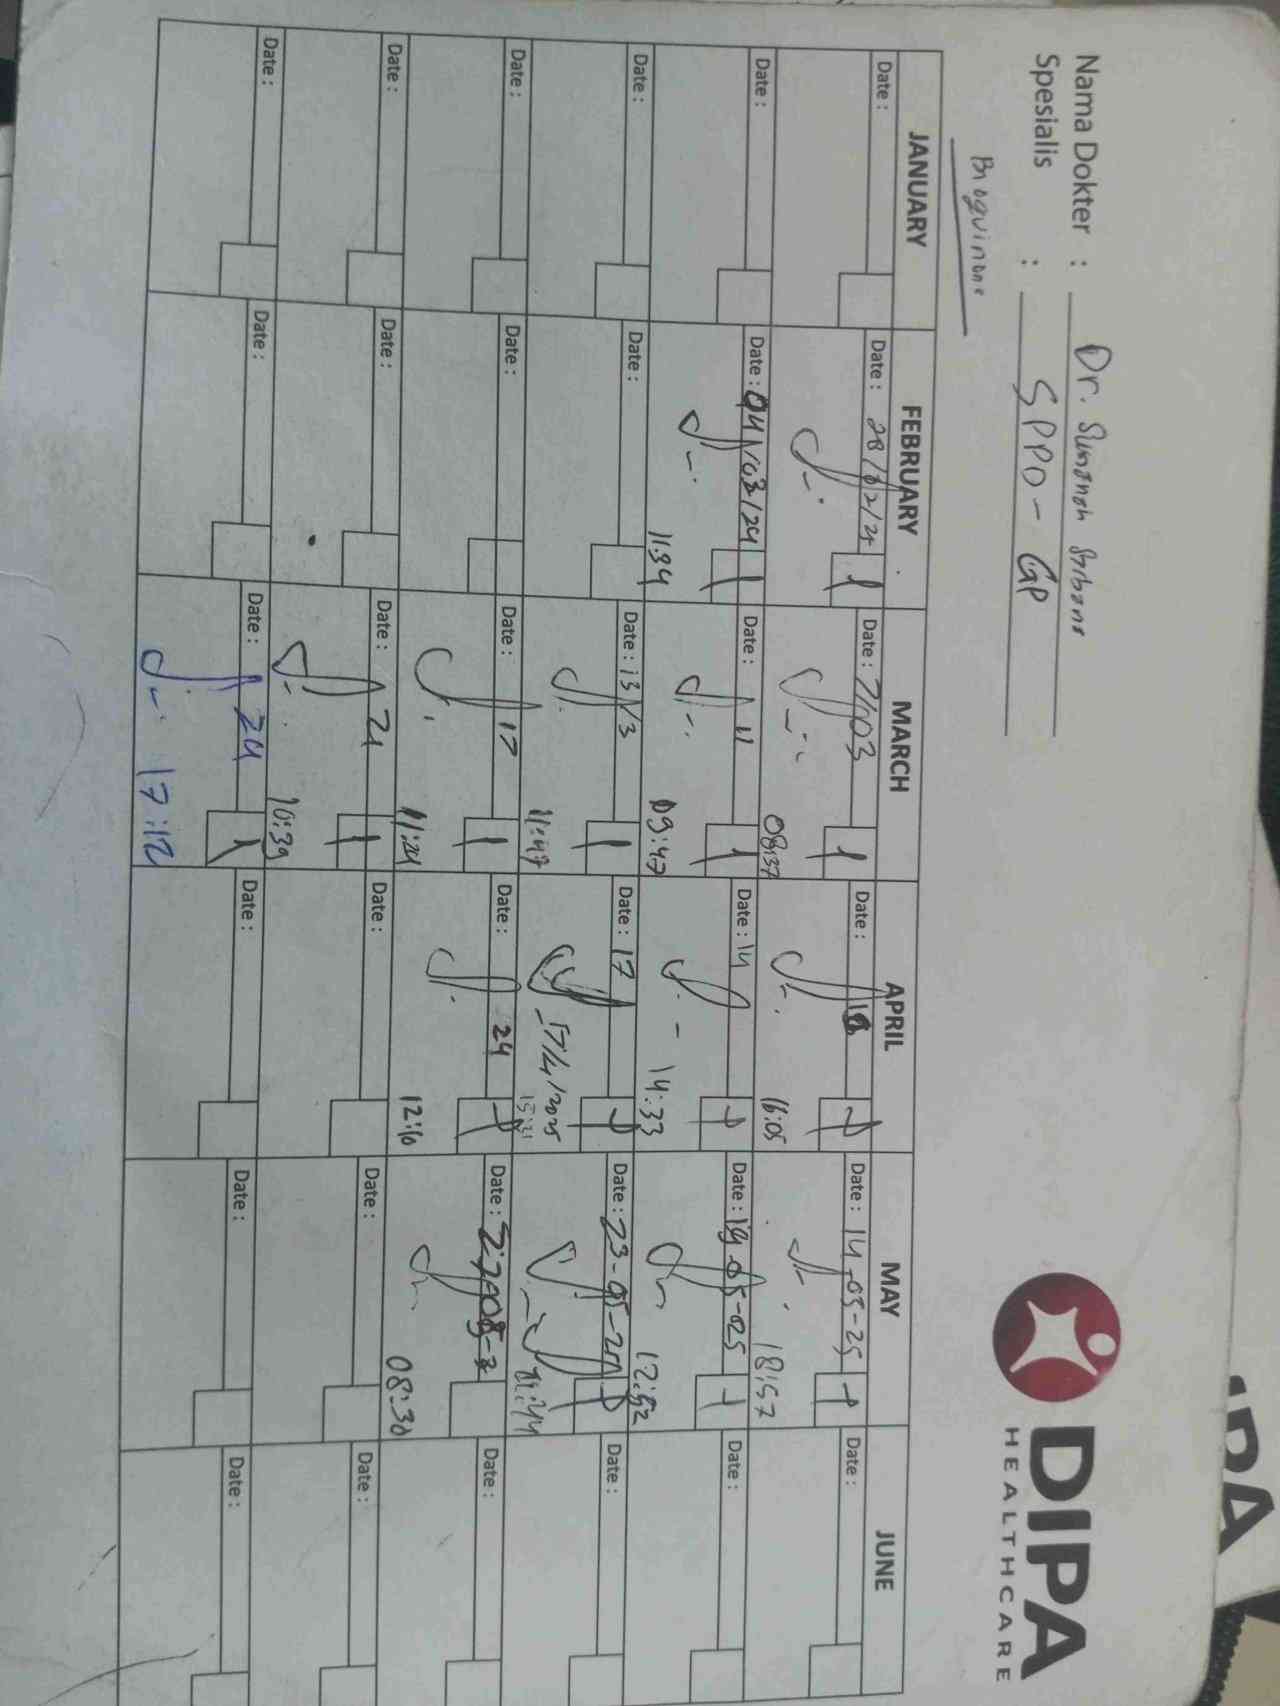 Nama Dokter :
Dr.
Spesialis :
SPPD - GP
DIPA
HEALTHCARE
JANUARY
FEBRUARY
MARCH
APRIL
MAY
JUNE
Date :
Date : 28/02/24
Date : 7/03
08:37
Date :
16:05
Date : 14-05-25
18:57
Date :
Date :
Date : 04/03/24
11:34
Date : 11
09:47
Date : 14
14:33
Date : 19-05-25
12:52
Date :
Date :
Date :
Date : 13/3
11:47
Date : 17
17/4/2025
Date : 23-05-25
11:44
Date :
Date :
Date :
Date : 17
11:24
Date : 24
12:10
Date :
08:30
Date :
Date :
Date :
Date : 21
10:39
Date :
Date :
Date :
Date :
Date :
Date : 24
17:12
Date :
Date :
Date :